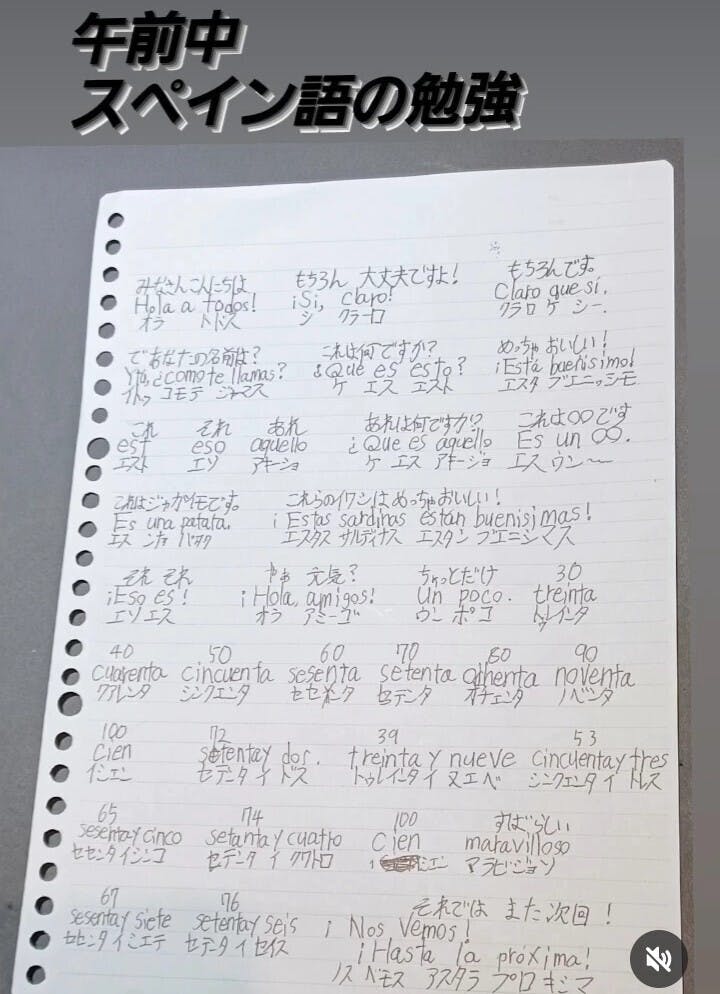 午前中
スペイン語の勉強
みなさんこんにちは もちろん 大丈夫ですよ! もちろんです。
Hola a todos! ¡Si, claro! Claro que si.
オラ トドス シ クラーロ クラロ ケ シー.
であなたの名前は? これは何ですか? めっちゃおいしい!
Ytú,¿como te llamas? ¿Que es esto? ¡Está buenisimo!
イトゥ コモテ ジャマス ケ エス エスト エスタ ブエニッシモ
これ それ あれ あれは何ですか? これは〇〇です
est eso aquello ¿Que es aquello Es un 〇〇.
エスト エソ アキージョ ケ エス アキージョ エス ウン〜
これはジャガイモです。 これらのイワシはめっちゃおいしい!
Es una patata. ¡Estas sardinas están buenisimas!
エス エスタス サルディナス エスタン ブエニシマス
それ それ やぁ 元気? ちょっとだけ 30
¡Eso es! ¡Hola, amigos! un poco. treinta
エソ エス オラ アミーゴ ウン ポコ トゥレインタ
40 50 60 70 80 90
cuarenta cincuenta sesenta setenta noventa
クアレンタ シンクエンタ セテンタ オチェンタ ノベンタ
100 72 39 53
Cien setentay dos. treinta y nueve cincuentay tres
シエン セテンタ イ ドス トゥレインタ イ ヌエベ シンクエンタ イ トレス
65 74 100 すばらしい
sesentay cinco setantay cuatro Cien maravilloso
セセンタ イシンコ セテンタ イ クワトロ シエン マラビジョソ
67 76 それでは また次回!
sesentay siete setentay seis ¡Nos vemos!
セセンタ イシエテ セテンタ イ セイス ¡Hasta la próxima!
ノス ベモス アスタラ プロキシマ